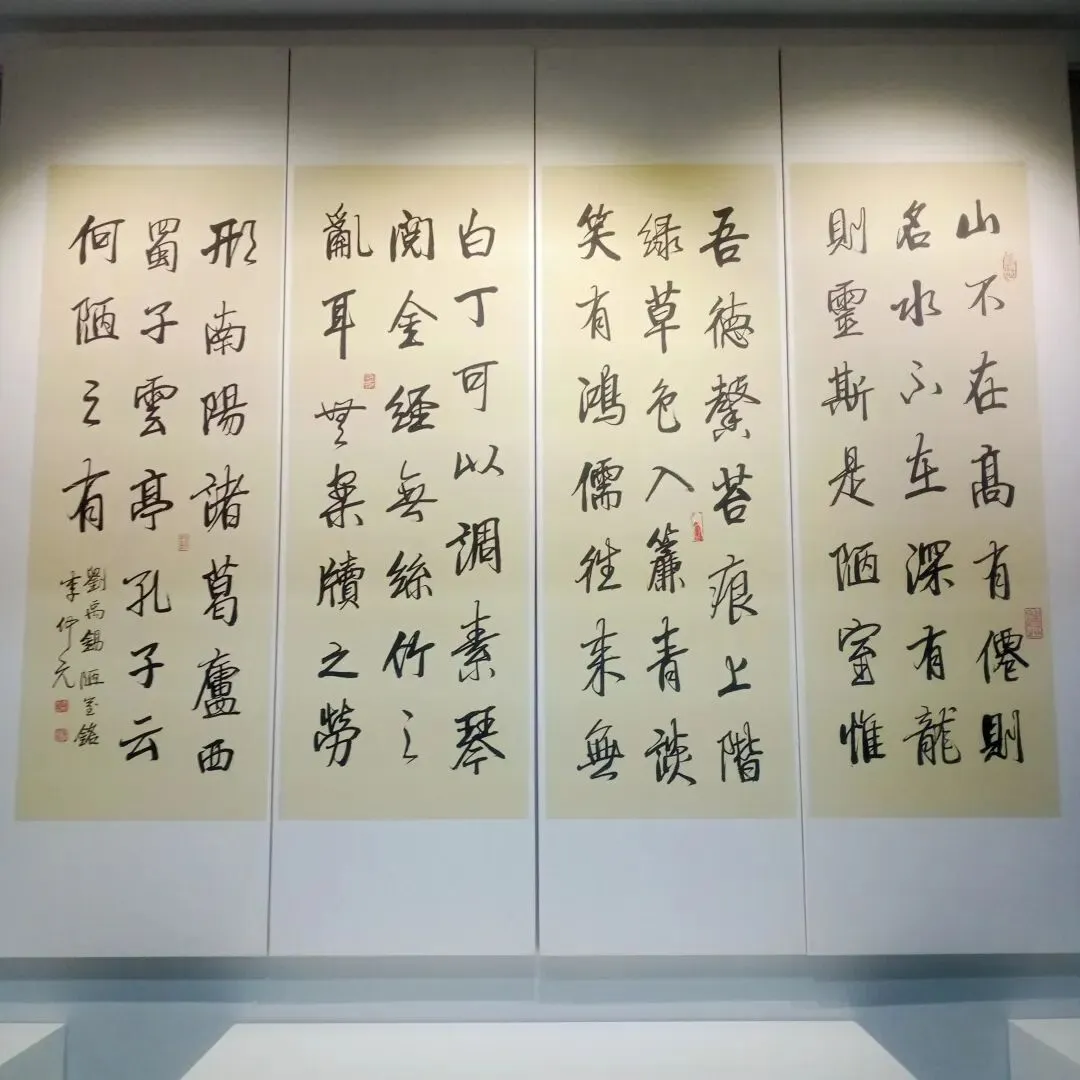 山不在髙有僊則
名水不在深有龍
則靈斯是陋室惟
吾德馨苔痕上階
緑草色入簾青談
笑有鴻儒往来無
白丁可以調素琴
閲金經無絲竹之
亂耳無案牘之勞
形南陽諸葛廬西
蜀子雲亭孔子云
何陋之有
劉禹錫陋室銘
李元